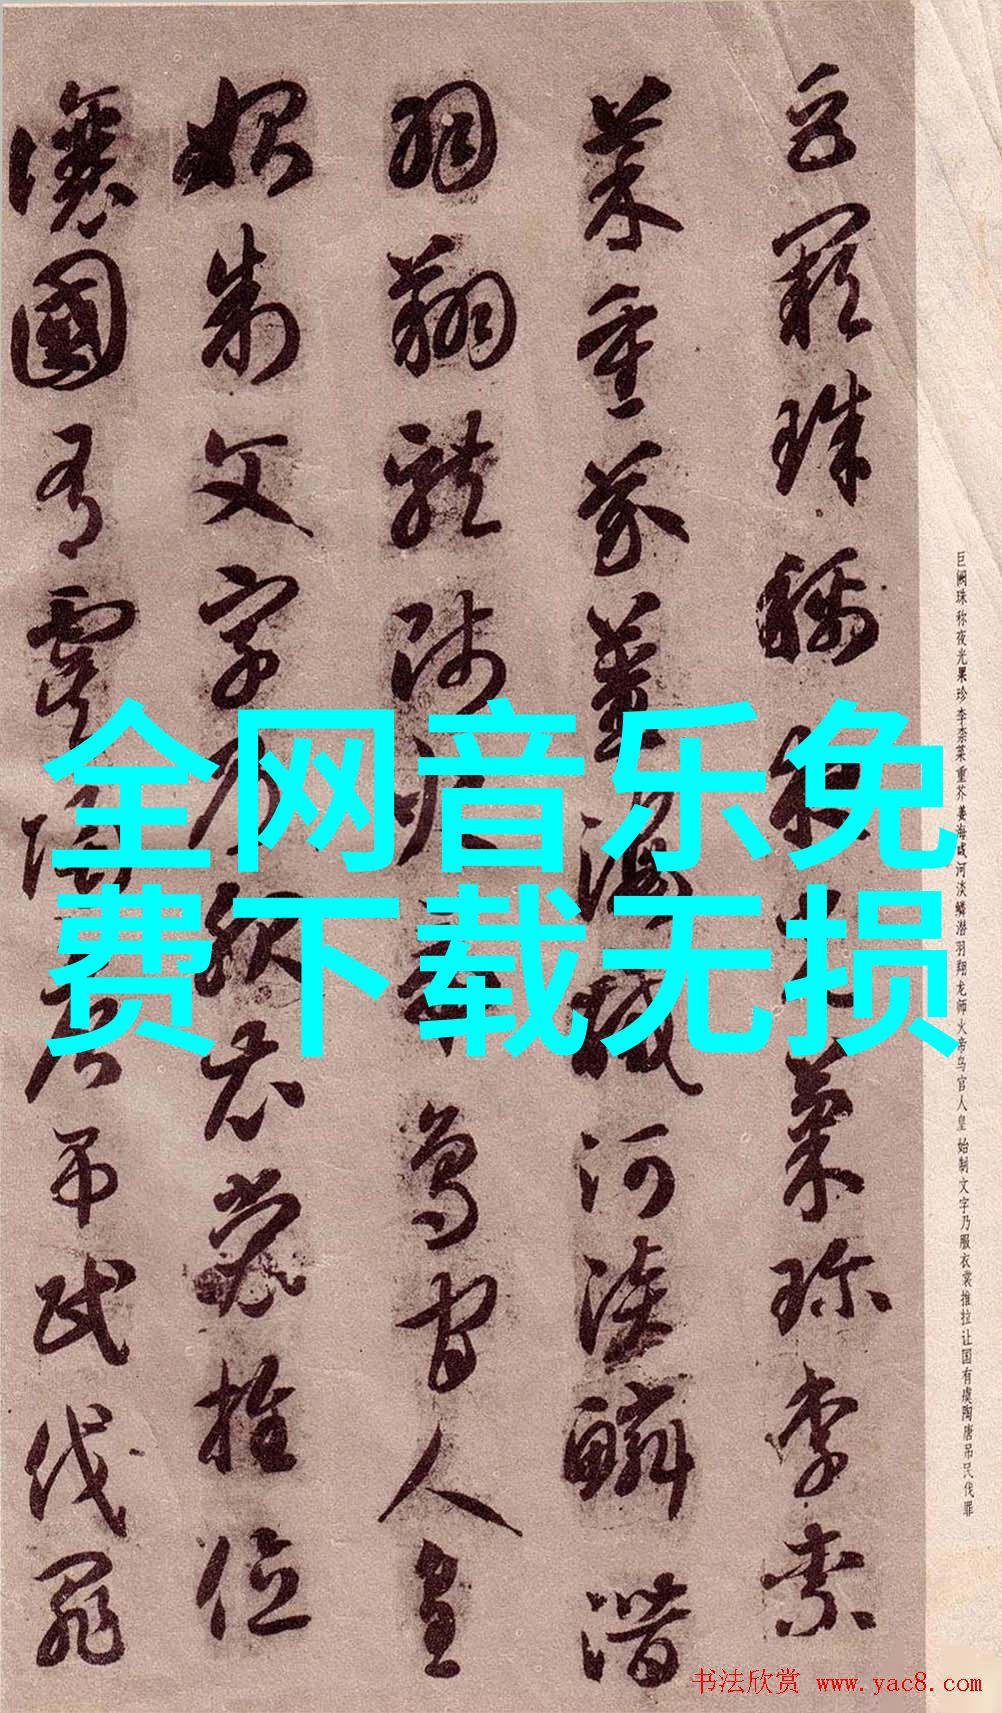 全网音乐免
费下载无损
巨闕珠稱夜光菓珍李柰
菜重芥薑海醎河淡鱗潛
羽翔龍師火帝鳥官人皇
始制文字乃服衣裳推位
讓國有虞陶唐弔民伐罪
巨阙珠称夜光果珍李柰菜重芥姜海咸河淡鳞潜羽翔龙师火帝鸟官人皇始制文字乃服衣裳推拉让国有虞陶唐吊民伐罪
书法欣赏 www.yac8.com